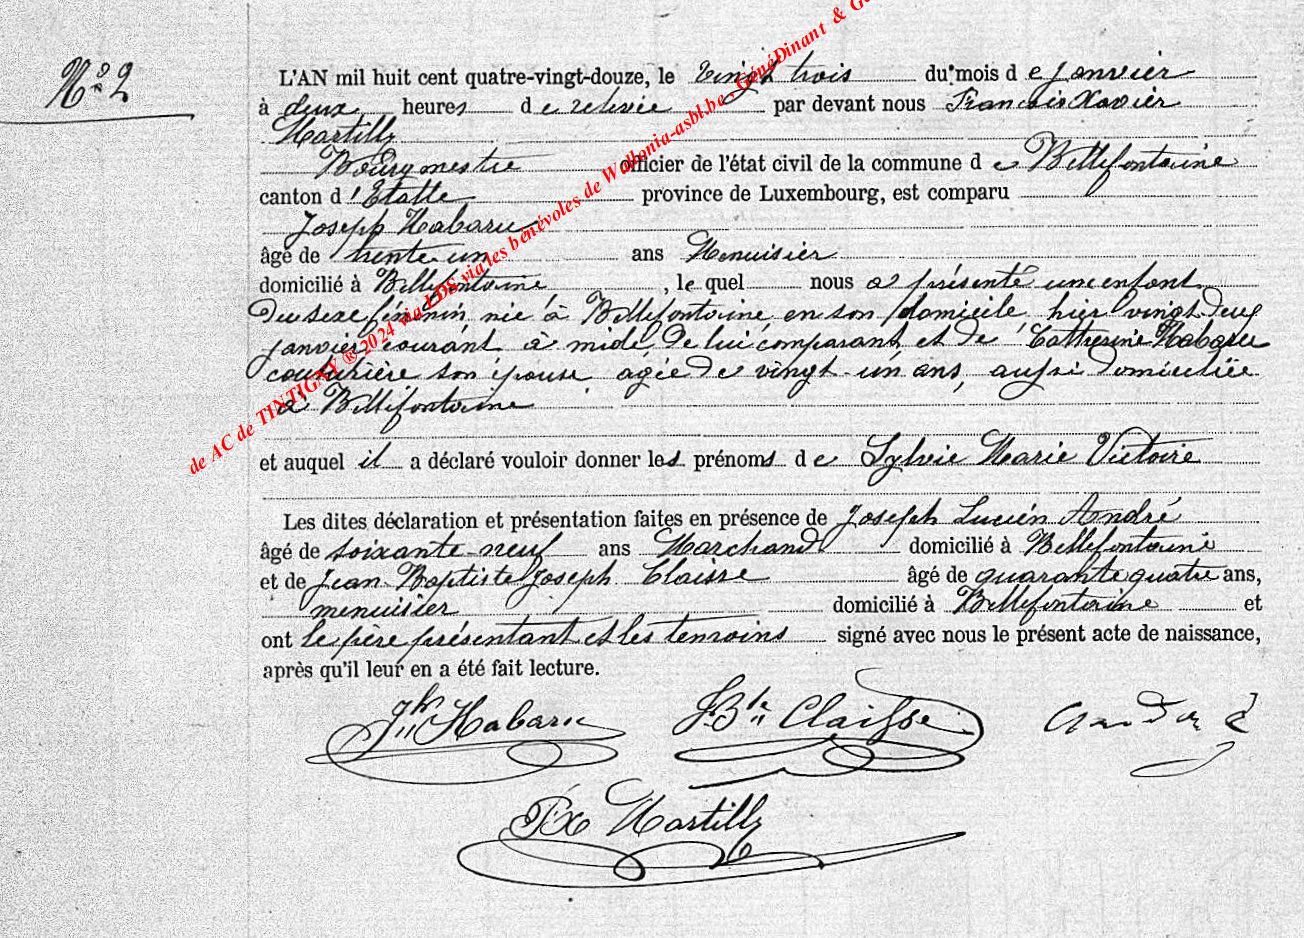 N° 2
L'AN mil huit cent quatre-vingt-douze, le vingt trois du mois de janvier
à deux heures de relevée par devant nous François Xavier
Martilly
Bourgmestre officier de l'état civil de la commune de Bellefontaine
canton d'Etalle province de Luxembourg, est comparu
Joseph Habaru
âgé de trente un ans Menuisier
domicilié à Bellefontaine, le quel nous a présenté une enfant
du sexe féminin née à Bellefontaine, en son domicile hier vingt deux
janvier courant à midi, de lui comparant et de Catherine Habaru
couturière son épouse agée de vingt-un ans, aussi domiciliée
à Bellefontaine
et auquel il a déclaré vouloir donner les prénoms de Sylvie Marie Victoire
Les dites déclaration et présentation faites en présence de Joseph Lucien André
âgé de soixante-neuf ans Marchand domicilié à Bellefontaine
et de Jean-Baptiste Joseph Claisse âgé de quarante quatre ans,
menuisier domicilié à Bellefontaine et
ont le père présentant et les temoins signé avec nous le présent acte de naissance,
après qu'il leur en a été fait lecture.
Jph Habaru J-Bte Claisse andré
Fx Martilly
de AC de TINTIGNY ® 2024 via LDS via les bénévoles de Wallonia-asbl.be GénéDinant & G